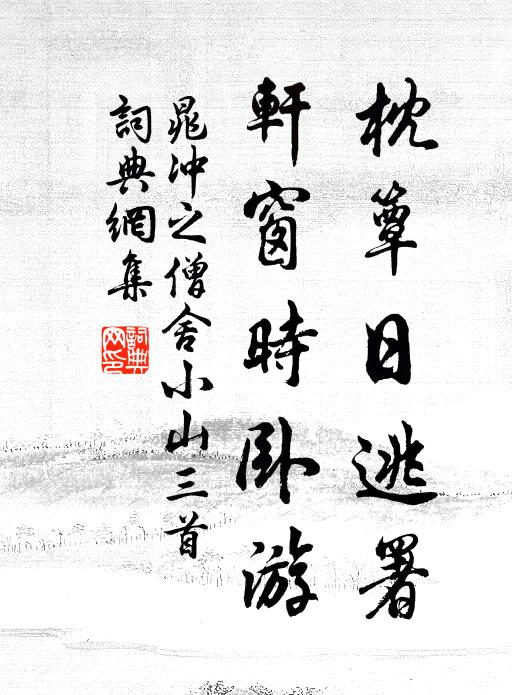 枕簟日逃署
軒窗時卧游
晁沖之僧舍小山三首
詞典網集
詞典網印